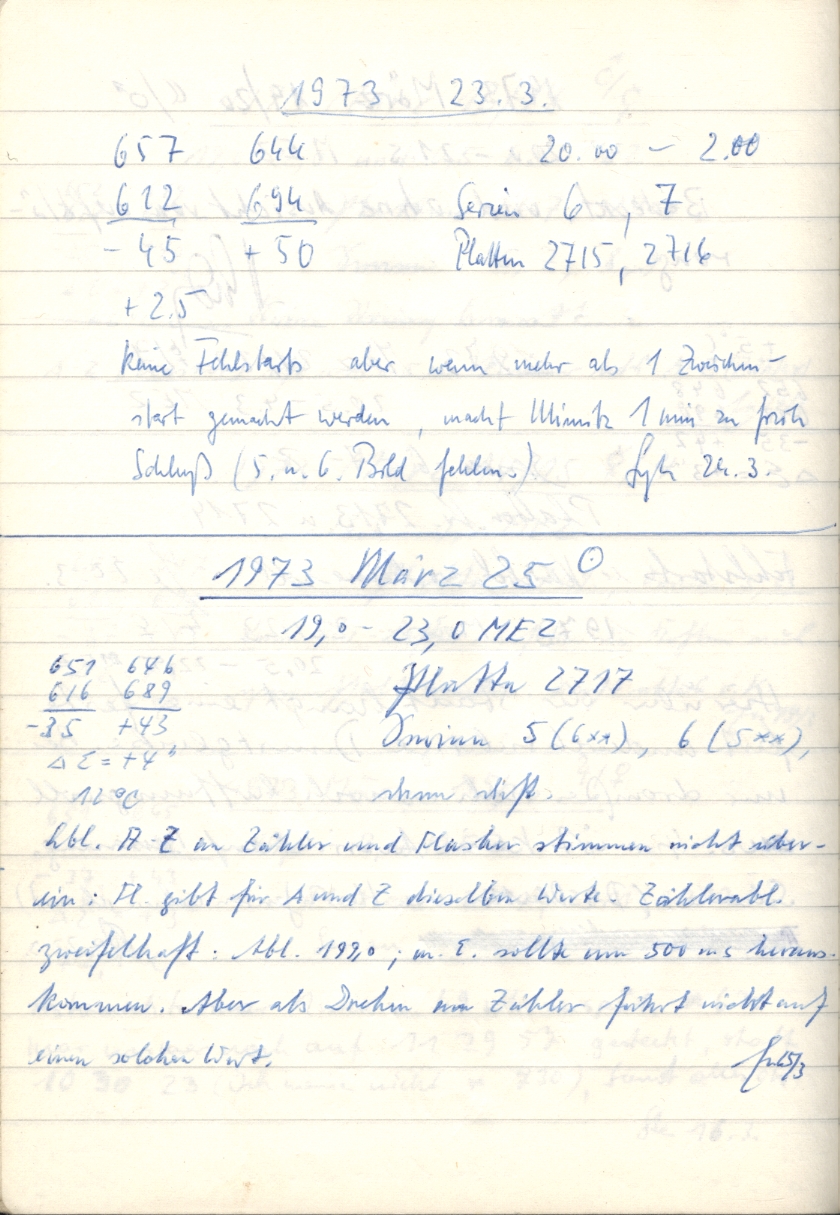 1973 23.3.
657 644 20.00 – 2.00
612 694 Serien 6, 7
- 45 + 50 Platten 2715, 2716
+ 2.5
keine Fehlstarts aber wenn mehr als 1 Zwischen-
start gemacht werden, macht 1 min zu früh
Schluß (5. u. 6. Bild fehlen.) 24.3.
1973 März 25 ⊙
19,0 – 23,0 MEZ
651 646 Platte 2717
616 689
-35 +43 5 (6××), 6 (5××),
Δ Σ = +4"
12°C dann
Abl. A Z an Zähler und Flasher stimmen nicht über-
ein: Fl. gibt für A und Z dieselben Werte. Zählerabl.
zweifelhaft: Abl. 199,0; m. E. sollte um 500 ms heraus-
kommen. Aber als Drehen am Zähler führt nicht auf
einen solchen Wert. 25/3